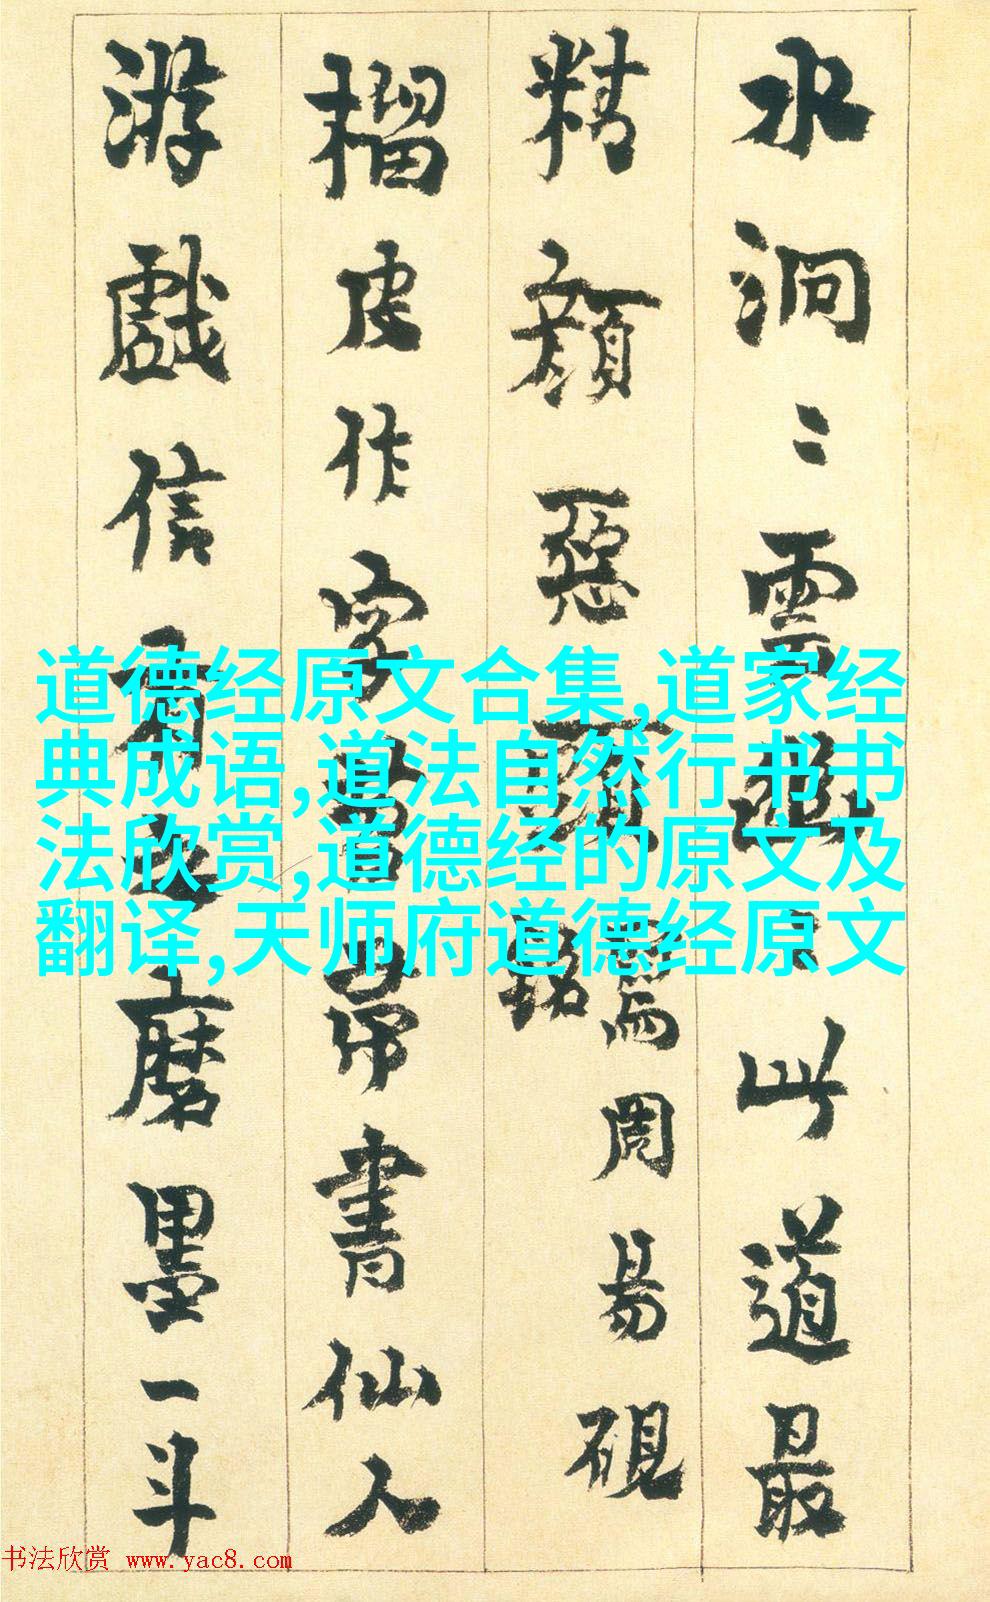 水洞〻雲〻此道最
精顏惡寫周易硯
榴皮作字苕帚書仙人
游戲信有之磨墨一斗
道德经原文合集,道家经
典成语,道法自然行书书
法欣赏,道德经的原文及
翻译,天师府道德经原文
书法欣赏 www.yac8.com